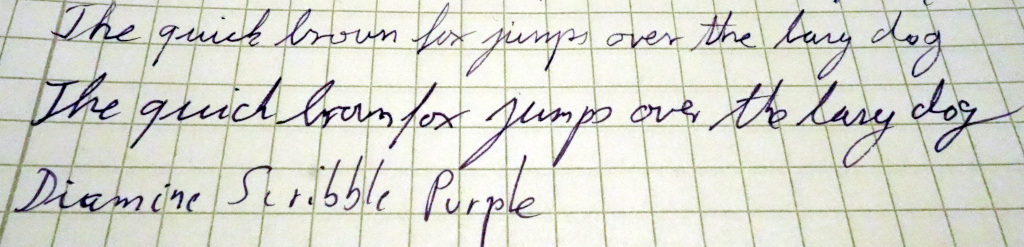 The quick brown fox jumps over the lazy dog
The quick brown fox jumps over the lazy dog
Diamine Scribble Purple